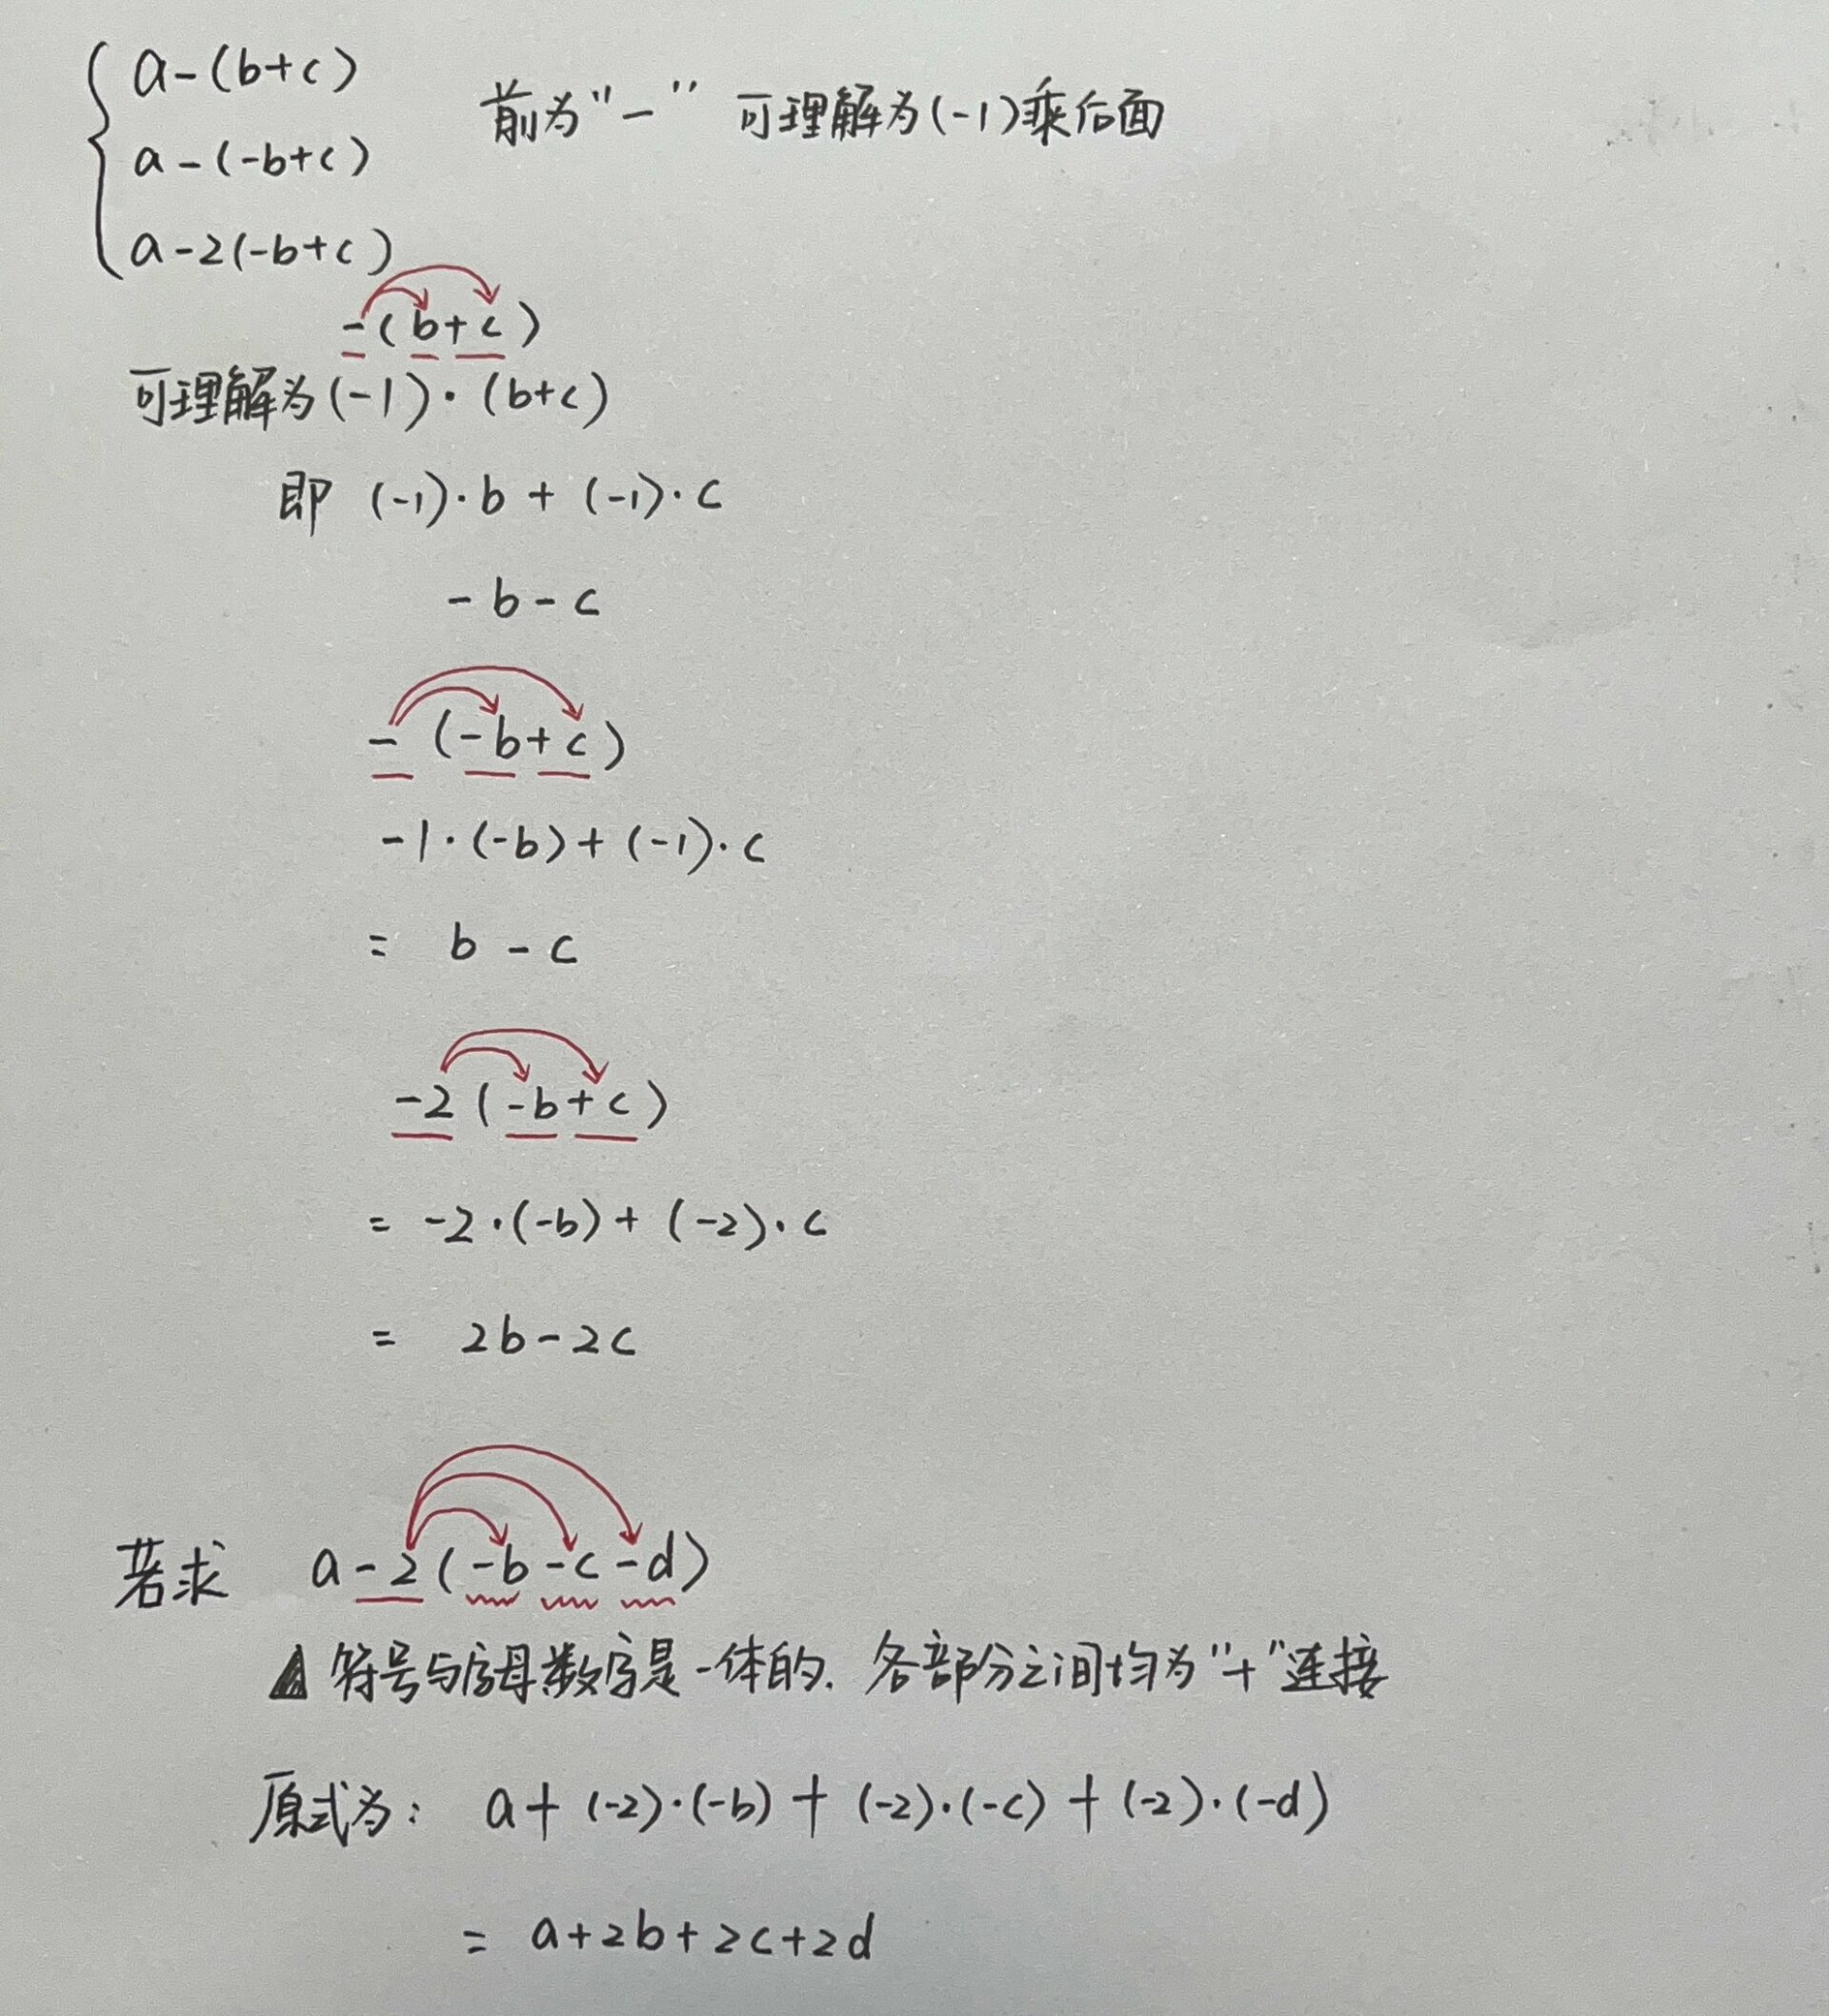 a-(b+c)
前为“-” 可理解为(-1)乘后面
a-(-b+c)
a-2(-b+c)
-(b+c)
可理解为(-1)·(b+c)
即 (-1)·b + (-1)·c
-b-c
-(-b+c)
-1·(-b)+(-1)·c
= b-c
-2(-b+c)
= -2·(-b)+(-2)·c
= 2b-2c
若求 a-2(-b-c-d)
▲符号与字母数字是一体的. 各部分之间均为“+”连接
原式为: a+(-2)·(-b)+(-2)·(-c)+(-2)·(-d)
= a+2b+2c+2d